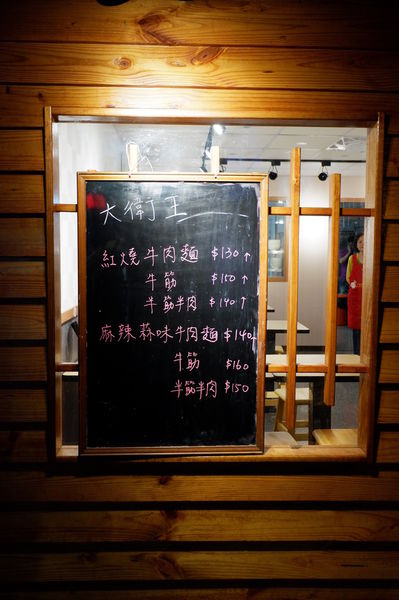 大衛王
紅燒牛肉麵 $130↑
牛筋 $150↑
半筋半肉 $140↑
麻辣蒜味牛肉麵 $140↑
牛筋 $160
半筋半肉 $150